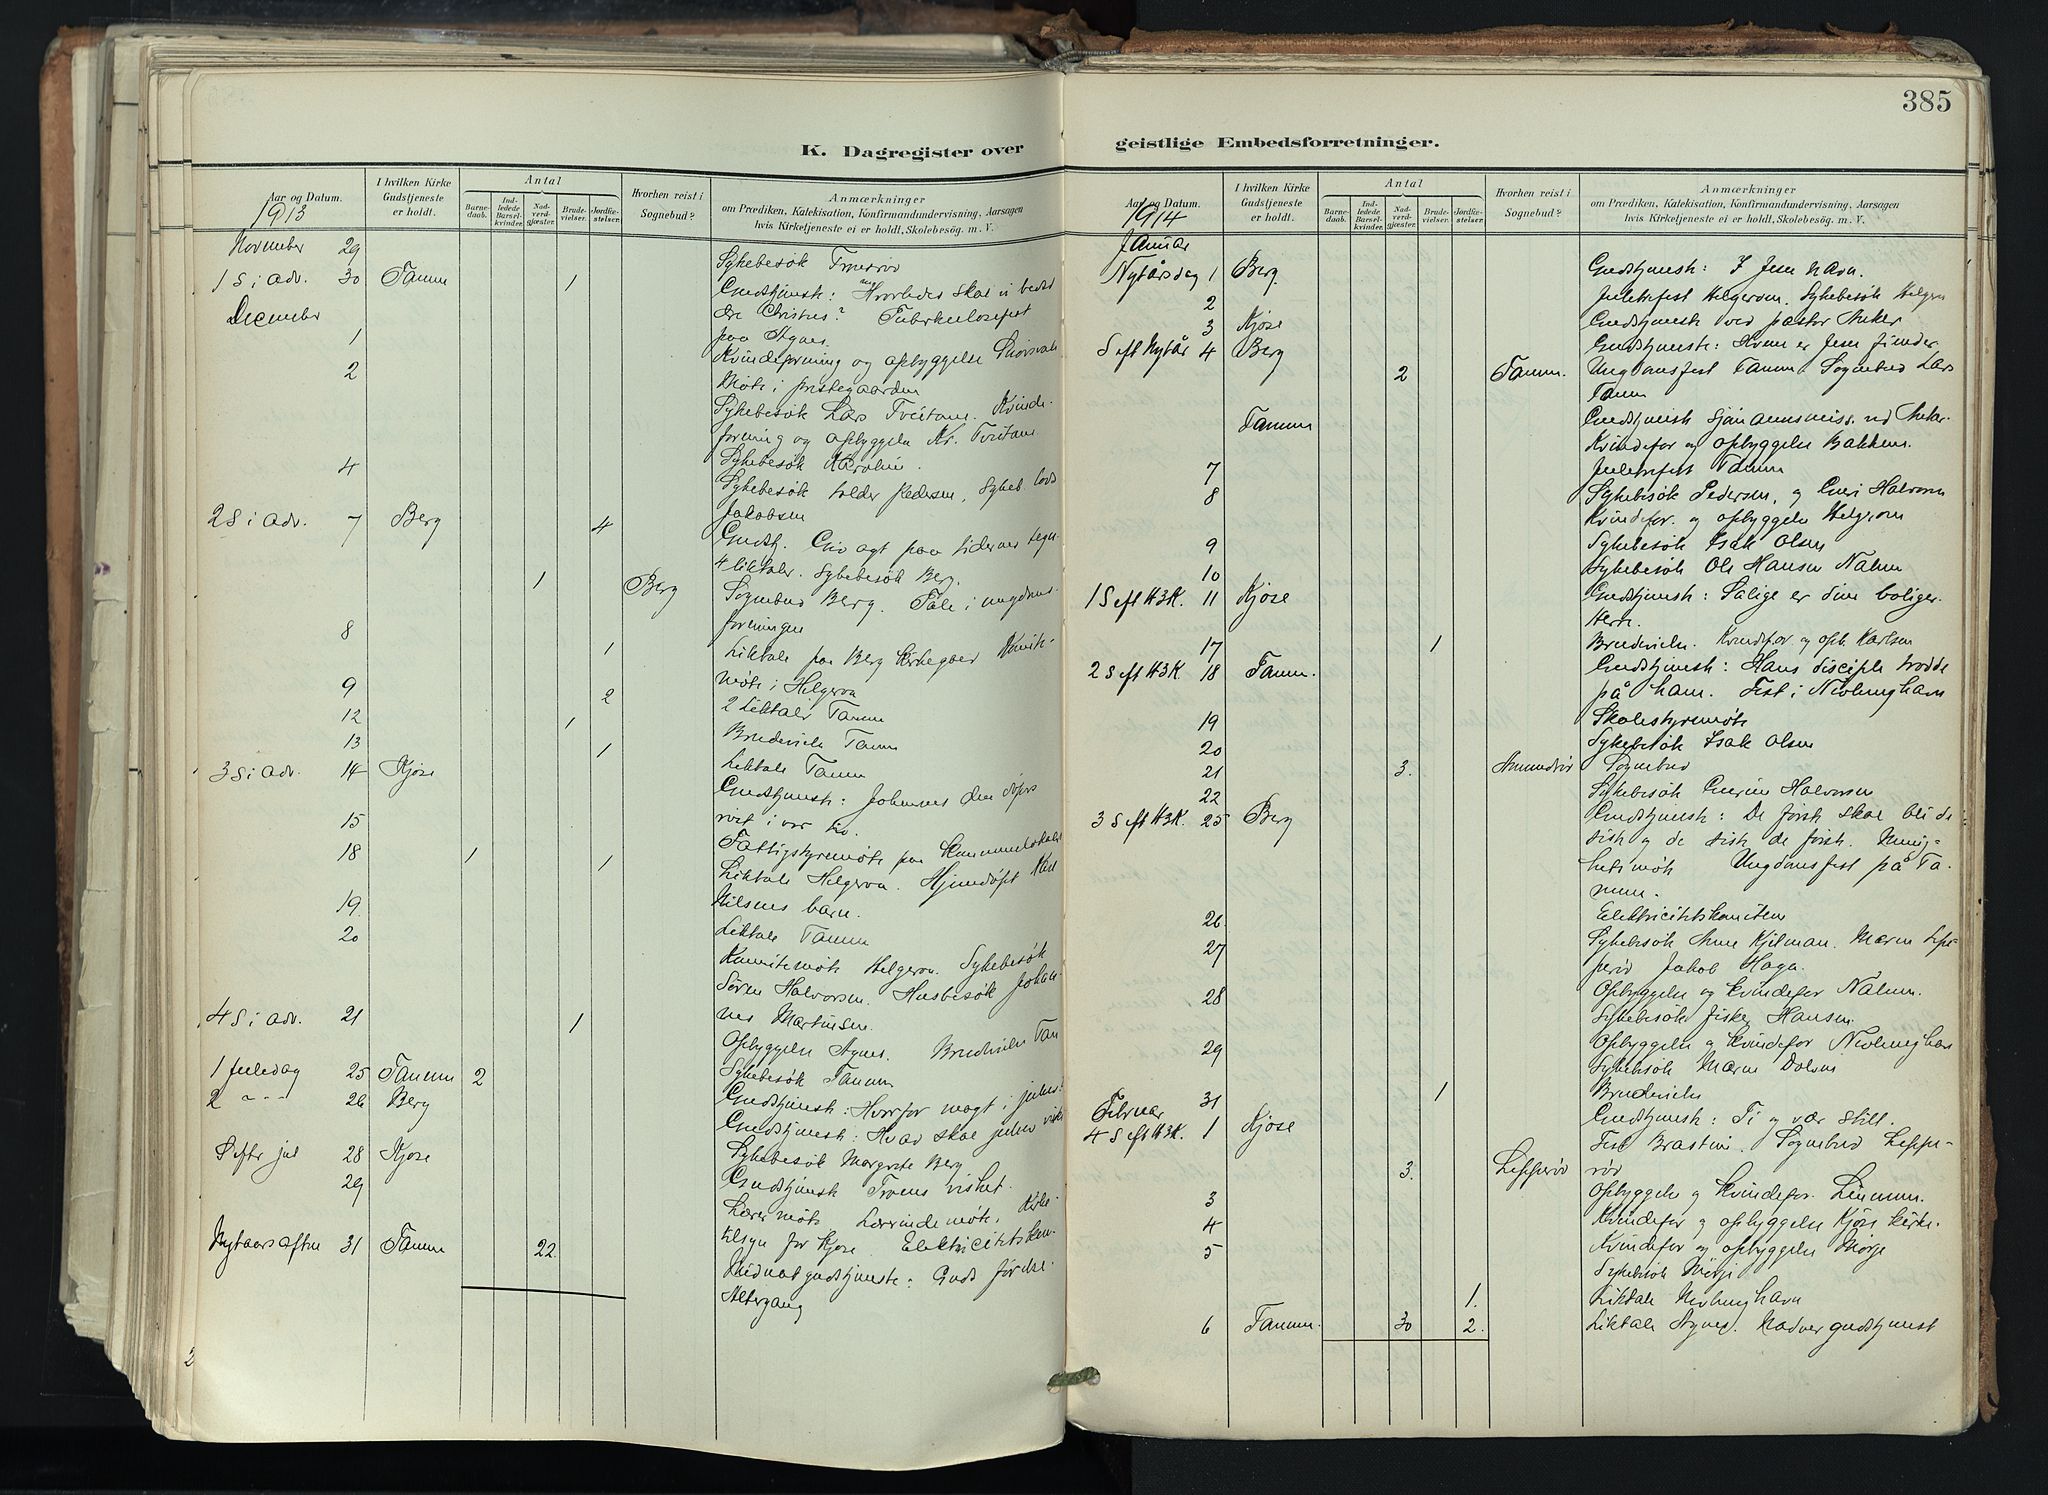 385
K. Dagregister over
geistlige Embedsforretninger.
Aar og Datum.
1913
I hvilken Kirke Gudstjeneste er holdt.
Antal
Barnedaab.
Indledede Barselkvinder.
Nadverdgjæster.
Brudevielser.
Jordfæstelser.
Hvorhen reist i Sognebud?
Anmærkninger
om Prædiken, Katekisation, Konfirmandundervisning, Aarsagen
hvis Kirketjeneste ei er holdt, Skolebesøg. m. V.
November 29 Sykebesök
1 S i adv. 30 Tanum 1 Gudstjeneste: Hvorledes skal vi
December Christus? Tuberkulosefest
paa Agnes.
1 Kvindeforening og opbyggelse
2 Møte i prestegaarden
Sykebesök Lars Tveitane. Kvinde-
forening og opbyggelse Kr. Tveitane
Sykebesök
4 Sykebesök Pedersen. Sykeb.
Jakobsen
2 S i adv. 7 Berg 4 Gudstj. Giv agt paa tidernes tegn
4 liktaler. Sykebesök Berg.
1 Berg Sognebud Berg. Tale i ungdoms-
foreningen
8 1 Liktale paa Berg kirkegaard
møte i Helgeroa
9 2 2 Liktaler Tanum
12 1 Brudevielse Tanum
13 1 Liktale Tanum
3 S i adv. 14 Kjose Gudstjeneste: Johannes den døpers
i vor tid.
15 Fattigstyremøte paa Kommunelokalet
18 1 1 Liktale Helgeroa. Hjemdøpt Karl
Nilsens barn.
19 Liktale Tanum
20 Komitemøte Helgeroa. Sykebesök
Søren Halvorsen. Husbesök Johan-
nes Martinsen.
4 S i adv. 21 1 Opbyggelse Agnes. Brudevielse Tan
Sykebesök Tanum
1 Juledag 25 Tanum 2 Gudstjeneste: Hvorfor
2 " " 26 Berg Gudstjeneste: Hvad skal julen
Sykebesök Margrete Berg
S efter jul 28 Kjose Gudstjeneste Troens vished.
29 Lærermøte Lærerindemøte. Kirke-
tilsyn for Kjose. Elektricitetskom-
Nytaarsaften 31 Tanum 22 Midnatgudstjeneste: Guds
Altergang
Aar og Datum.
1914
I hvilken Kirke Gudstjeneste er holdt.
Antal
Barnedaab.
Indledede Barselkvinder.
Nadverdgjæster.
Brudevielser.
Jordfæstelser.
Hvorhen reist i Sognebud?
Anmærkninger
om Prædiken, Katekisation, Konfirmandundervisning, Aarsagen
hvis Kirketjeneste ei er holdt, Skolebesög. m. V.
Januar
Nytårsdag 1 Berg Gudstjeneste: I Jesu navn.
2 Juletrefest Helgeroa. Sykebesök Helgeroa
3 Kjose Gudstjeneste ved pastor Anker
S eft Nytår 4 Berg Gudstjeneste: Hvem er Jesu fiender
2 Tanum. Ungdomsfest Tanum Sognebud Lars
Tanum
Tanum Gudstjeneste sjömannsmiss. ved Anker.
Kvindefor og opbyggelse Bakkene.
7 Juletrefest Tanum
8 Sykebesök Pedersen, og Guri Halvorsen
Kvindefor. og opbyggelse Helgeroa
9 Sykebesök Isak Olsen
10 Sykebesök Ole Hansen Nalum
1 S eft H3K. 11 Kjose Gudstjeneste: Salige er dine boliger
Herre.
17 1 Brudevielse. Kvindefor og opb. Karlsen
2 S eft H3K 18 Tanum. Gudstjeneste: Hans disciple trodde
på ham. Fest i Nevlunghavn
19 Skolestyremøte
20 Sykebesök Isak Olsen
21 3. Amundrød Sognebud
22 Sykebesök Gurine Halvorsen
3 S eft H3K. 25 Berg Gudstjeneste: De første skal bli de
siste og de siste de første. Menig-
hetsmøte Ungdomsfest på Ta-
num.
26 Elektricitetskomiteen
27 Sykebesök Anne Kjelman. Maren Leppe-
rød Jakob Haga.
28 Opbyggelse og kvindefor Nalum.
Sykebesök fisker Hansen.
29 Opbyggelse og kvindefor Nevlunghavn
Sykebesök Maren Dolven
31 1 Brudevielse
Februar
4 S eft H3K. 1 Kjose Gudstjeneste: Ti og vær still.
Fest. Sognebud Leppe-
3. Lepperød rød
3 Opbyggelse og kvindefor.
4 Kvindefor og opbyggelse Kjose kirke.
5 Kvindefor og opbyggelse Mørje
Sykebesök Mørje
1. Liktale Nevlunghavn
6 Tanum. 30 2. Liktale Agnes. Nadver gudstjenest